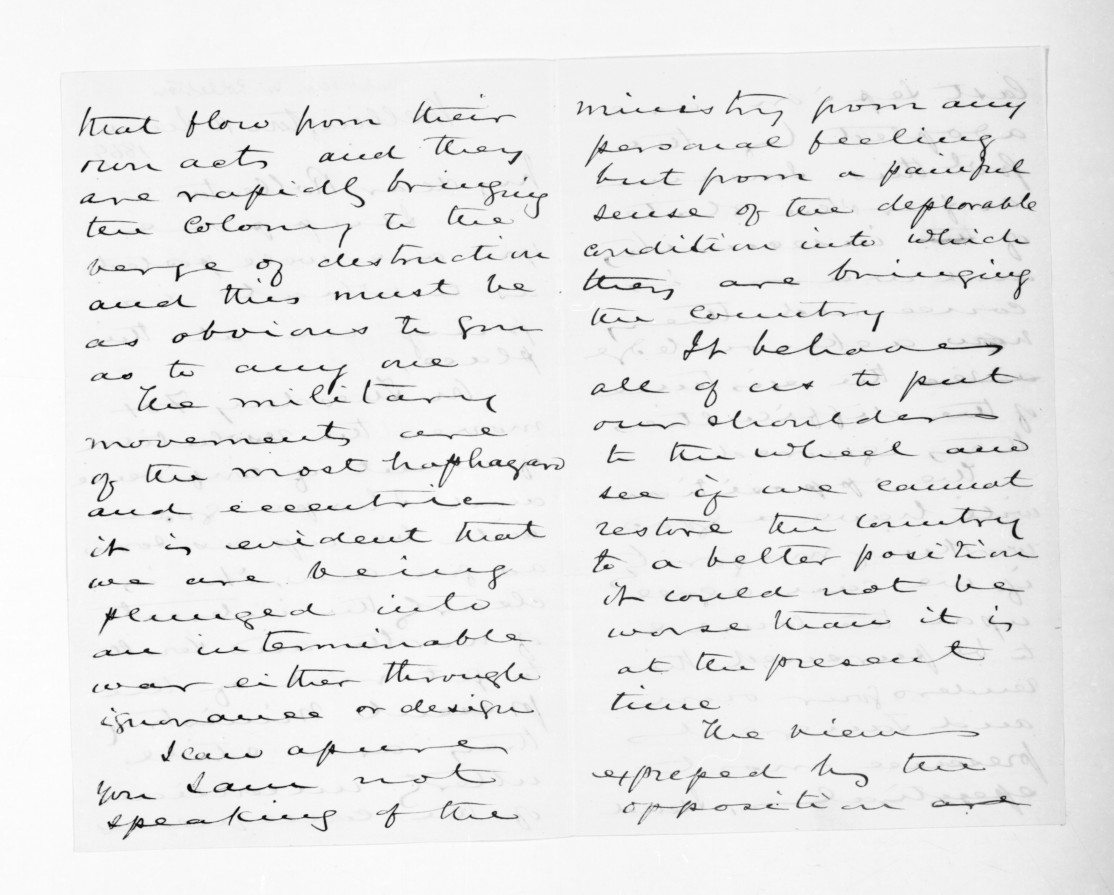 that flow from their
own acts and they
are rapidly bringing
the Colony to the
verge of destruction
and this must be
as obvious to you
as to any one
The military
movements are
of the most haphazard
and eccentric
it is evident that
we are being
plunged into
an interminable
war either through
ignorance or design
I can assure
you I am not
speaking of the
ministry from any
personal feeling
but from a painful
sense of the deplorable
condition into which
they are bringing
the country
It behooves
all of us to put
our shoulders
to the wheel and
see if we cannot
restore the country
to a better position
it could not be
worse than it is
at the present
time
The views
expressed by the
opposition are